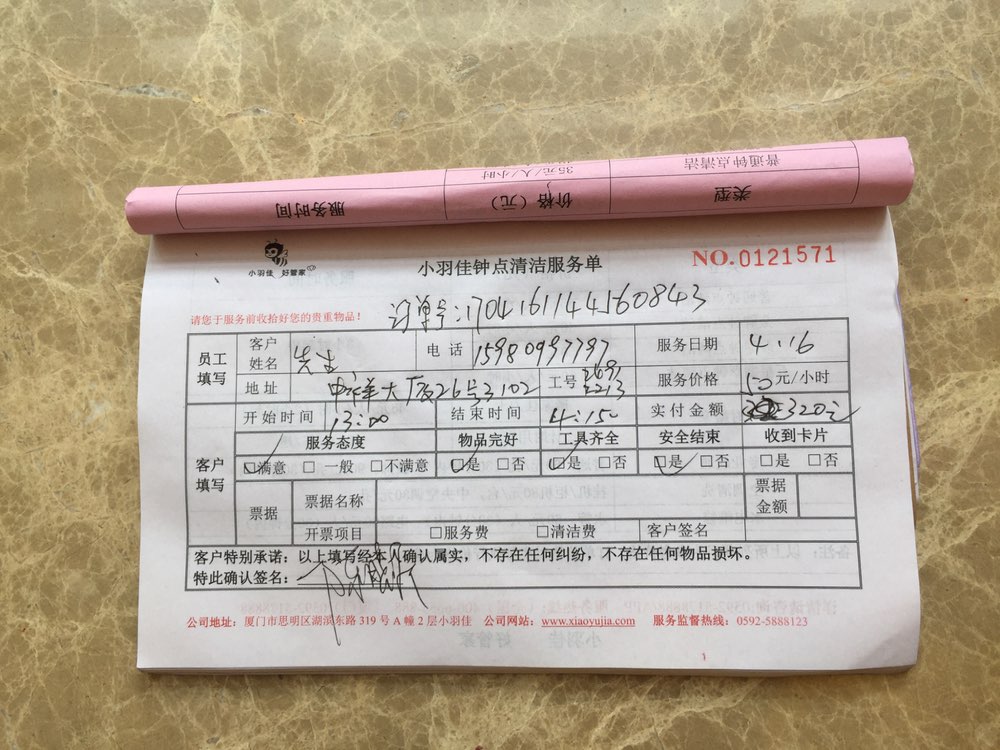 类型 价格（元） 服务时间
普通钟点清洁 35元/人/小时
小羽佳 好管家
小羽佳钟点清洁服务单
NO.0121571
请您于服务前收拾好您的贵重物品！
订单号:17041611444160843
员工填写 客户姓名 先生 电话 15980997797 服务日期 4.16
地址 大厦26号3102 工号 服务价格 50元/小时
客户填写 开始时间 13:00 结束时间 4:150 实付金额 320元
服务态度 物品完好 工具齐全 安全结束 收到卡片
☑满意 □ 一般 □不满意 ☑是 □否 ☑是 □否 ☑是 □否 □是 □否
票据 票据名称 票据金额
开票项目 □服务费 □清洁费 客户签名
客户特别承诺：以上填写经本人确认属实，不存在任何纠纷，不存在任何物品损坏。
特此确认签名：
公司地址：厦门市思明区湖滨东路 319 号 A 幢 2 层小羽佳 公司网站：www.xiaoyujia.com 服务监督热线：0592-5888123